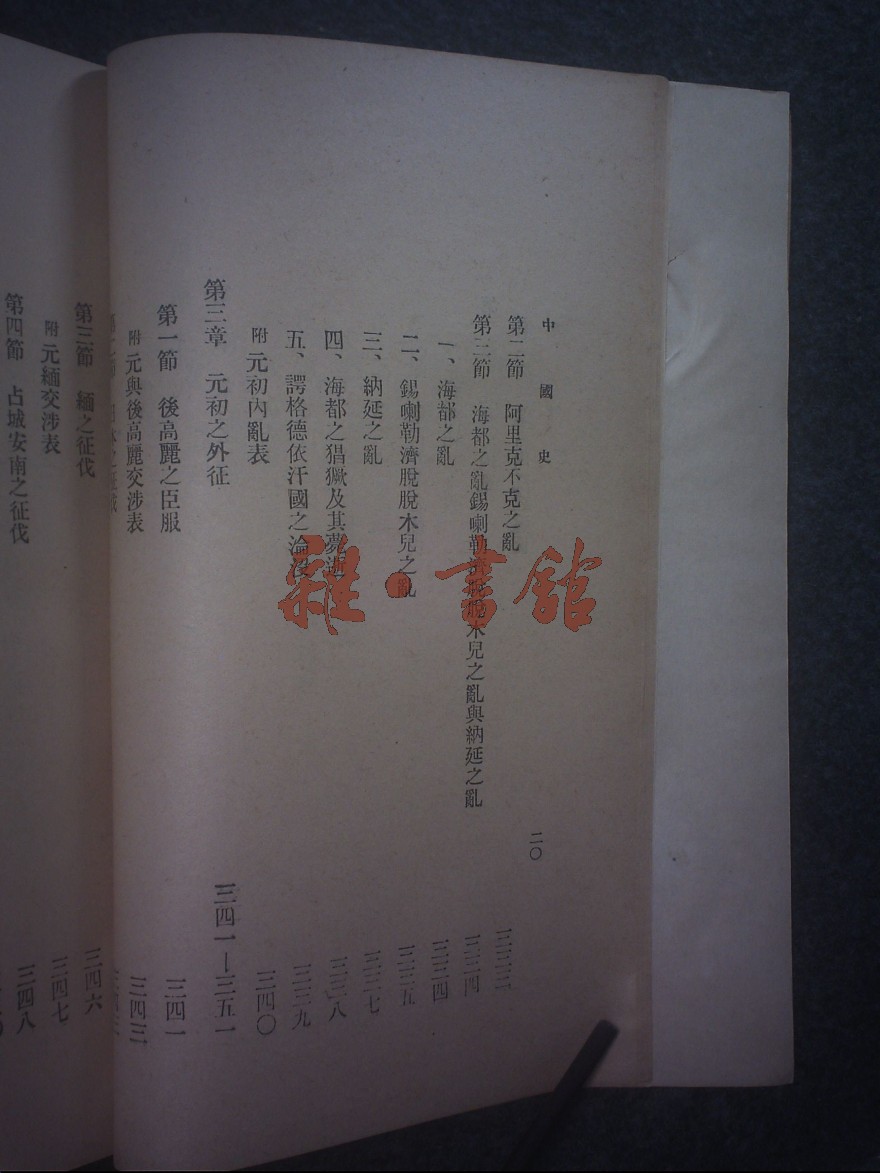 中國史 二〇
第二節 阿里克不克之亂 三三三
第三節 海都之亂錫喇勒濟脫脫木兒之亂與納延之亂 三三四
一、海都之亂 三三四
二、錫喇勒濟脫脫木兒之亂 三三五
三、納延之亂 三三七
四、海都之猖獗及其薨逝 三三八
五、諤格德依汗國之淪沒 三三九
附 元初內亂表 三四〇
第三章 元初之外征 三四一—三五一
第一節 後高麗之臣服 三四一
附 元與後高麗交涉表 三四三
第三節 緬之征伐 三四六
附 元緬交涉表 三四七
第四節 占城安南之征伐 三四八
雜·書館